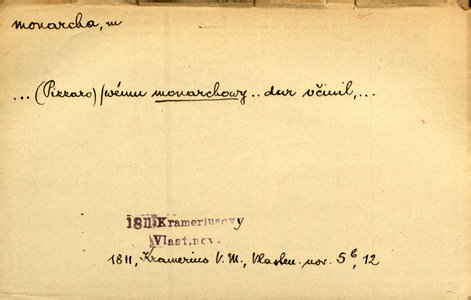 monarcha, m
... (Pizzaro) swému monarchowy .. dar včinil, ...
1811 Krameriusovy
Vlast.nov.
1811, Kramerius V. M., Vlasten. nov. 5 6, 12